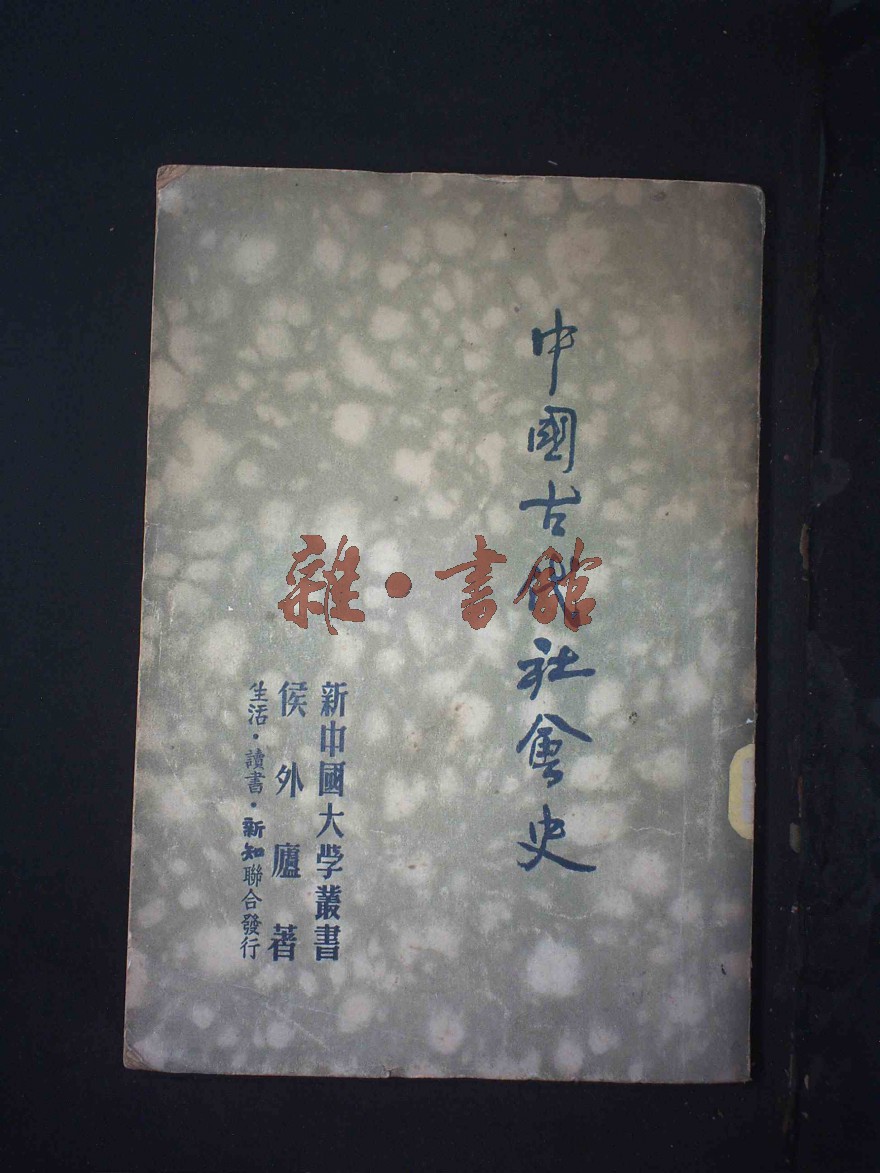 中國古代社會史
新中國大学叢書
侯外廬著
生活·讀書·新知聯合發行
雜·書館